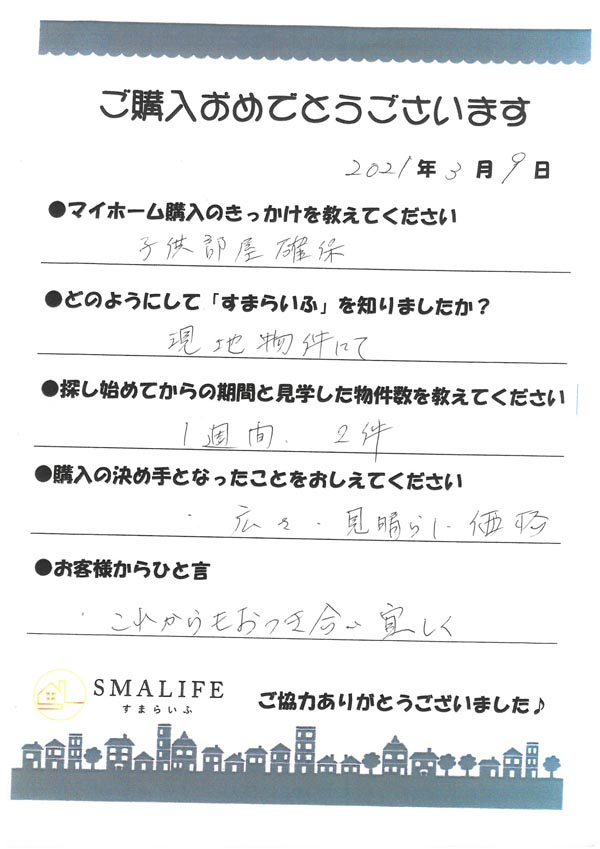 ご購入おめでとうございます
2021年3月9日
●マイホーム購入のきっかけを教えてください
子供部屋確保
●どのようにして「すまらいふ」を知りましたか?
現地物件にて
●探し始めてからの期間と見学した物件数を教えてください
1週間、2件
●購入の決め手となったことをおしえてください
・広さ・見晴らし・価格
●お客様からひと言
・これからもおつき合い宜しく
SMALIFE
すまらいふ
ご協力ありがとうございました♪